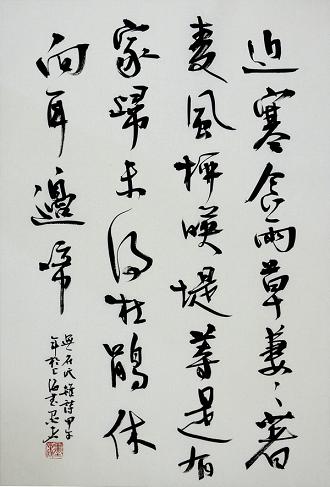 近寒食雨草萋〻著
麦風柳暎堤等是有
家歸未得杜鵑休
向耳邊啼
無名氏雜詩甲午
年於上海書